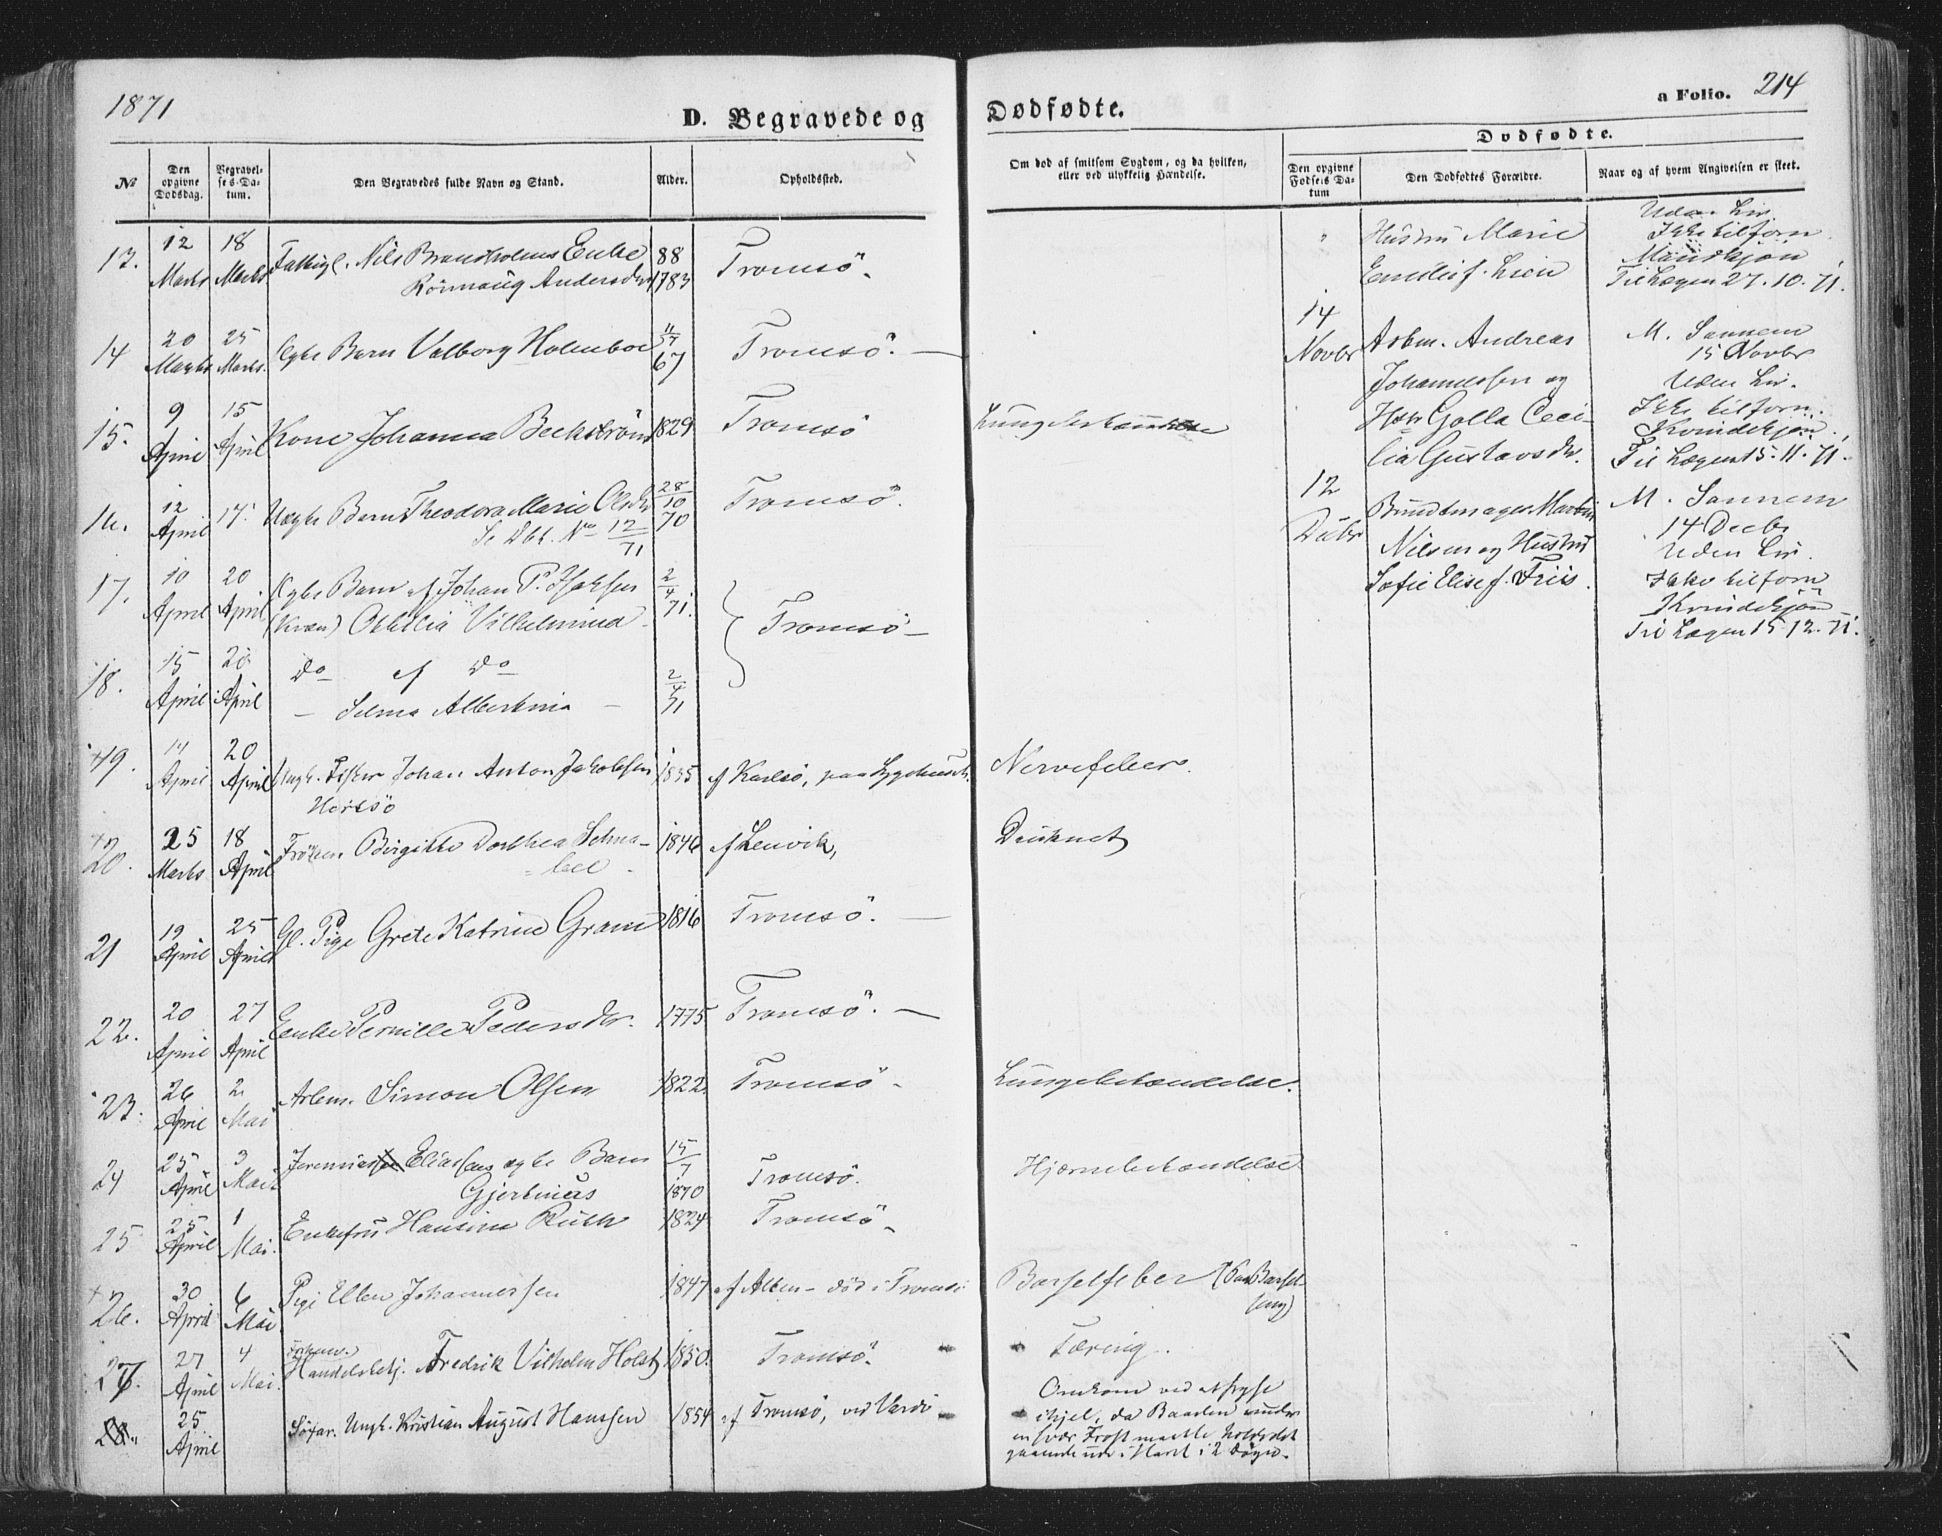 1871
D. Begravede og Dødfødte.
a Folio. 214
Dødfødte.
№
Den opgivne Dødsdag.
Begravelses-Datum.
Den Begravedes fulde Navn og Stand.
Alder.
Opholdssted.
Om død af smitsom Sygdom, og da hvilken, eller ved ulykkelig Hændelse.
Den opgivne Fødsels Datum
Den Dødfødtes Forældre.
Naar og af hvem Angivelsen er skeet.
13. 12 Marts 18 Marts Fattigl. Nils Enke 88 Tromsö.
Andersdtr 1783
14 20 Marts 25 Marts Ægte Barn Valborg Holmboe 11/7 67 Tromsö.
15. 9 April 15 April Kone Johanna Beckström 1829 Tromsö
16. 12 April 17. Uægte Barn Theodora Marie Olsdtr 28/10 70 Tromsö.
Se Dbt. No 12/71
17. 10 April 20 April Ægte Barn af Johan P. Isaksen 2/4 71. Tromsö
(Kvæn) Othilia Vilhelmina
18. 15 April 20 April Do af Do
Selma Albertina 2/4 71
+19. 14 April 20 April Ungk. Fisker Johan Anton Jakobsen 1835 af Karlsö, paa Sygehuset. Nervefeber.
+20. 25 Marts 18 April Fröken Birgitte Dorthea 1846 af Lenvik, Druknet
21 19 April 25 April Gl. Pige Grete Katrine Gram 1816 Tromsö.
22. 20 April 27 April Enke Pernille Pedersdtr. 1775 Tromsö.
23. 26 April 2 Mai Arbm. Simon Olsen 1822 Tromsö Lungebetændelse.
24 25 April 3 Mai Eliassens ægte Barn 15/7 1870 Tromsö. Hjernebetændelse
25 25 April 1 Mai. Enkefru Hansine Ruth 1824 Tromsö
+26. 30 April 6 Mai Pige Ellen Johannessen 1847 af Alten - död i Tromsö Barselfeber
27. 27 April 4 Mai. Handelsbetj. Fredrik Vilhelm Holst 1850. Tromsö. Tæring.
28. 25 April Ungk. Kristian August Hanssen 1854 af Tromsö, ved Vardö
Omkom ved at fryse
ihjel, da Baaden under
en svær Frost maatte holde det
gaaende ude i Havet i 2 Dögn.
Hustru Marie
f. Lien
Uden Liv.
Ikke tilforn.
Mandkjøn
Til Lægen 27.10.71.
14 Novbr
Arbm. Andreas
Johannessen og
Hstr Golla Ceci-
lia Gustavsdtr.
M. Sannem
15 Novbr
Uden Liv.
Ikke tilforn.
Kvindekjøn.
Til Lægen 15.11.71.
12 Decbr
Bundtmager Martin
Nilsen og Hustru
Sofie Elise f. Friis.
M. Sannem
14 Decbr
Uden Liv.
Ikke tilforn
Kvindekjøn
Til Lægen 15.12.71.